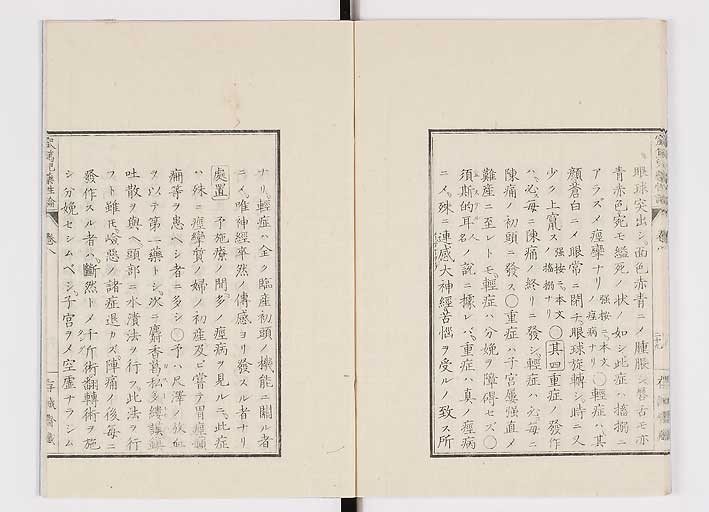 眼球突出シ、面色赤青ニメ腫脹シ、唇舌モ亦
青赤色宛モ縊死ノ状ノ如シ此症ハ搐搦ニ
アラズメ痙攣ナリ 強按ニ本文ノ症病ナリ 〇輕症ハ其
顔蒼白ニメ眼常ニ閉チ眼球旋轉シ時ニ又
少ク上竄ス 強按ニ本文ノ搐搦ナリ 〇其四重症ノ發作
ハ必毎ニ陣痛ノ終リニ發シ輕症ハ必毎ニ
陳痛ノ初頭ニ發ス〇重症ハ子宮厳强直メ
難産ニ至レトモ、輕症ハ分娩ヲ障碍セズ〇
須斯的耳名ノ説ニ據レバ、重症ハ真ノ痙病
ニメ、殊ニ連感大神經苦惱ヲ受ルノ致ス所
ナリ、輕症ハ全ク臨産初頭ノ機能ニ關ル者
ニメ、唯神經卒然ノ傳感ヨリ發スル者ナリ
處置 予施療ノ間多ノ痙病ヲ見ルニ、此症
ハ殊ニ痙攣質ノ婦ノ初産及ビ嘗テ胃痙
痛等ヲ患ヘシ者ニ多シ〇予ハ尺澤ノ放血
ヲ以テ第一藥トシ、次ニ麝香葛私多縷謨
吐散ヲ與ヘ頭部ニ水漬法ヲ行フ、此法ヲ行
フト雖𪜈嶮悪ノ諸症退カズ、陣痛ノ後毎ニ
發作スル者ハ、斷然トメ手術翻轉術ヲ施
シ分娩セシムベシ、子宮ヲメ空虚ナラシム
卷八
存誠齋藏